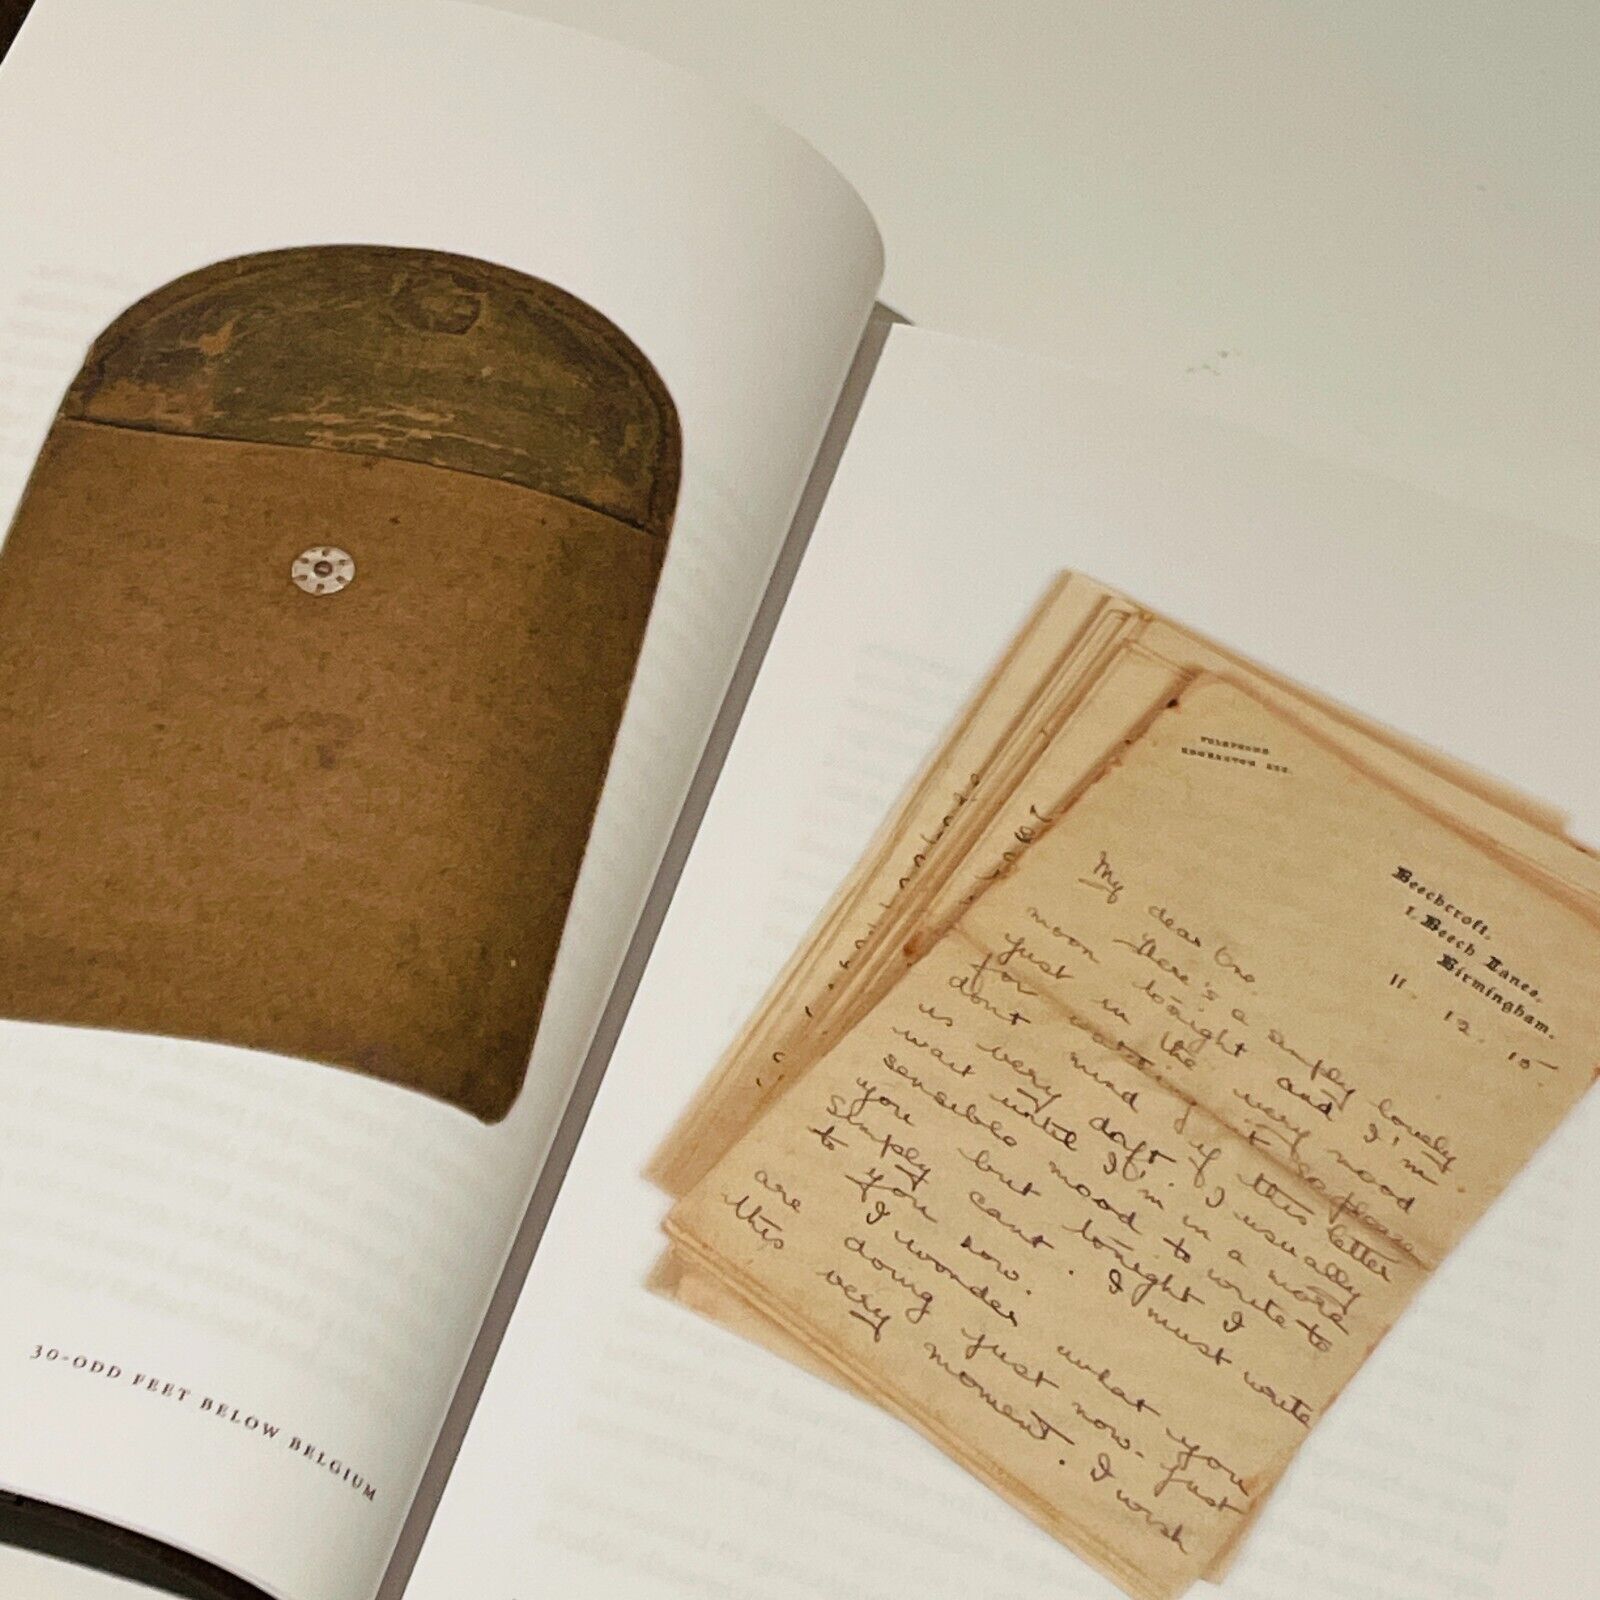 30-ODD FEET BELOW BELGIUM
TELEPHONE
EDGBASTON
Beechcroft,
1, Beech Lanes,
Birmingham.
11. 12. 15.
My dear One.
There's a simply lovely
moon tonight and I'm
just in the very mood
for so please
dont mind if this letter
is very daft. I usually
wait until I'm in a more
sensible mood to write to
you but tonight I
simply cant. I must write
to you now.
I wonder what you
are doing just now. Just
this very moment. I wish